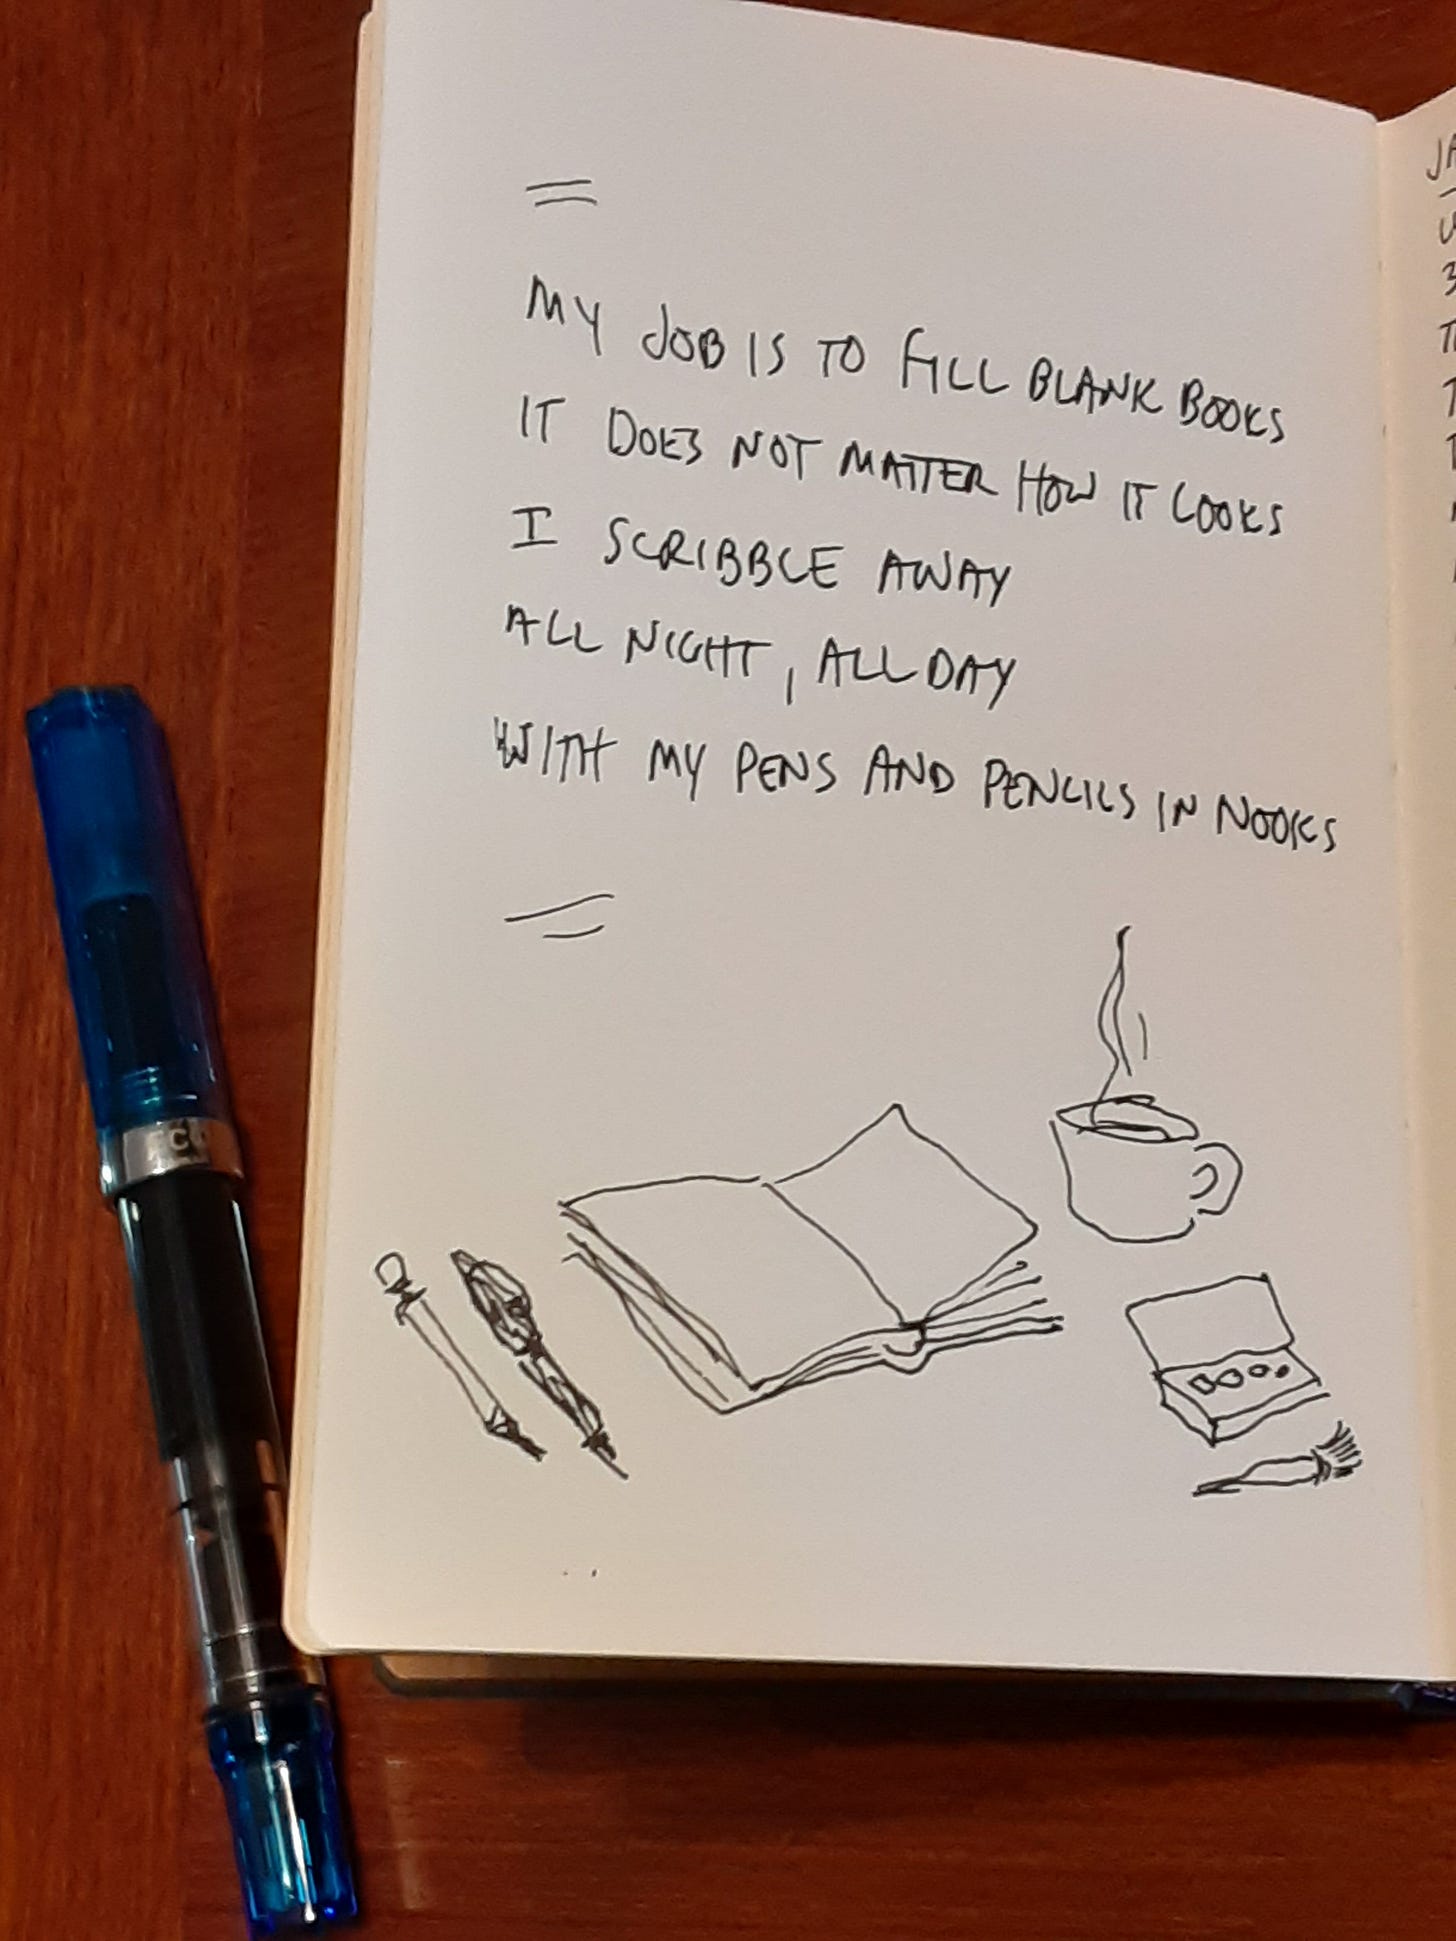 MY JOB IS TO FILL BLANK BOOKS
IT DOES NOT MATTER HOW IT LOOKS
I SCRIBBLE AWAY
ALL NIGHT, ALL DAY
WITH MY PENS AND PENCILS IN NOOKS